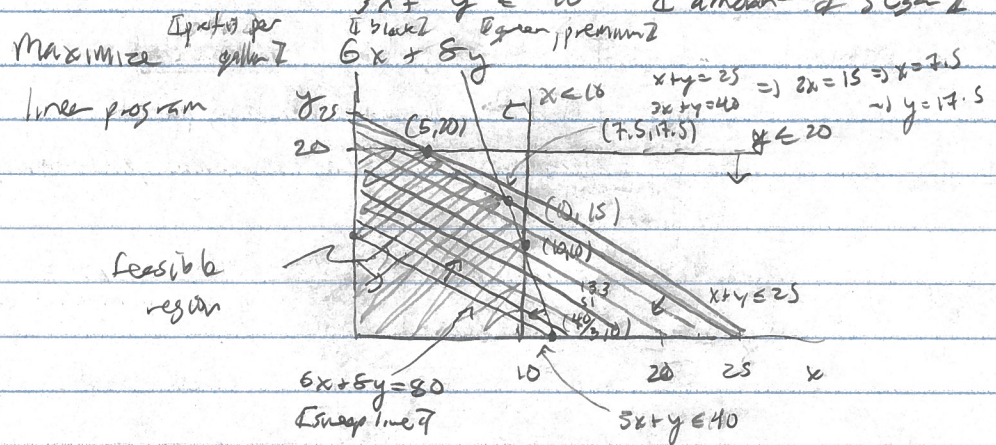 3x + y ≤ 40 [amount of sugar]
[profit per gallon] [black] [green, premium]
Maximize 6x + 8y
linear program
y
25
20
(5,20)
x ≤ 10
x+y=25
3x+y=40
=> 2x=15 => x=7.5
~> y=17.5
(7.5,17.5)
y ≤ 20
(10,15)
(10,10)
feasible region
13.3
(40/3,0)
x+y ≤ 25
10
20
25
x
6x+8y=80
[sweep line]
3x+y ≤ 40